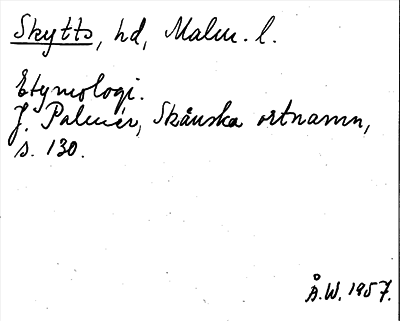 Skytts, hd, Malm. l.
Etymologi.
J. Palmér, Skånska ortnamn,
s. 130.
Å.W. 1957.